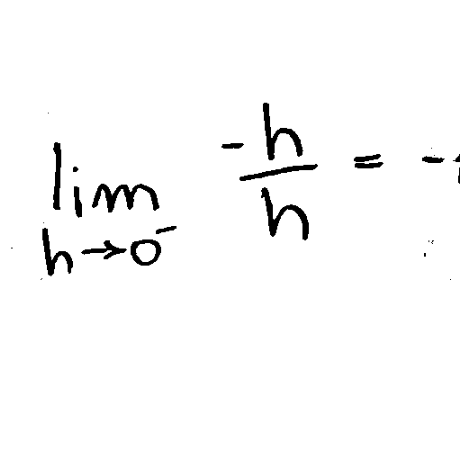 lim_{h→0⁻} -h/h = -